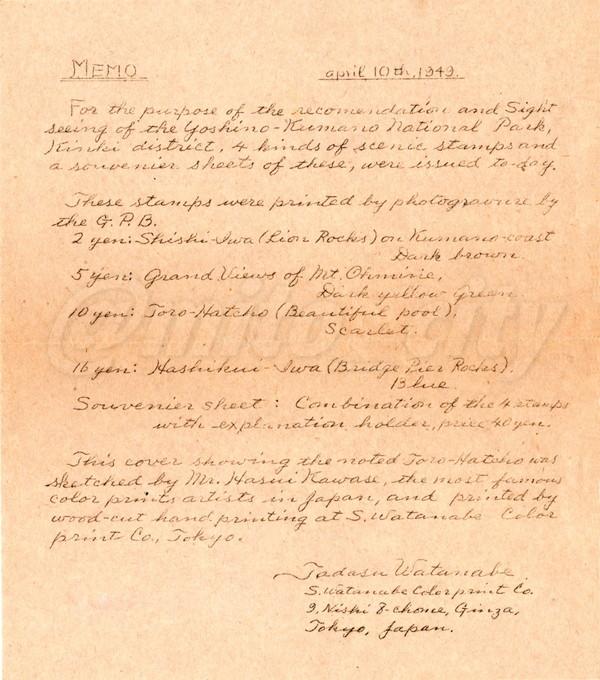 MEMO
april 10th, 1949.
For the purpose of the recomendation and Sight
seeing of the Yoshino-Kumano National Park,
Kinki district, 4 kinds of scenic stamps and
a souvenier sheets of these, were issued to-day.
These stamps were printed by photogravure by
the G.P.B.
2 yen: Shishi-Iwa (Lion Rocks) on Kumano-coast
Dark brown.
5 yen: Grand Views of Mt. Ohmine,
Dark yellow Green.
10 yen: Toro-Hatcho (Beautiful pool),
Scarlet.
16 yen: Hashikui-Iwa (Bridge Pier Rocks).
Blue.
Souvenier sheet : Combination of the 4 stamps
with explanation holder, price 40 yen.
This cover showing the noted Toro-Hatcho was
sketched by Mr. Hasui Kawase, the most famous
color prints artists in Japan, and printed by
wood-cut hand printing at S. Watanabe Color
print Co., Tokyo.
Tadasu Watanabe
S. Watanabe Color print Co.
9, Nishi 8-chome, Ginza,
Tokyo, Japan.